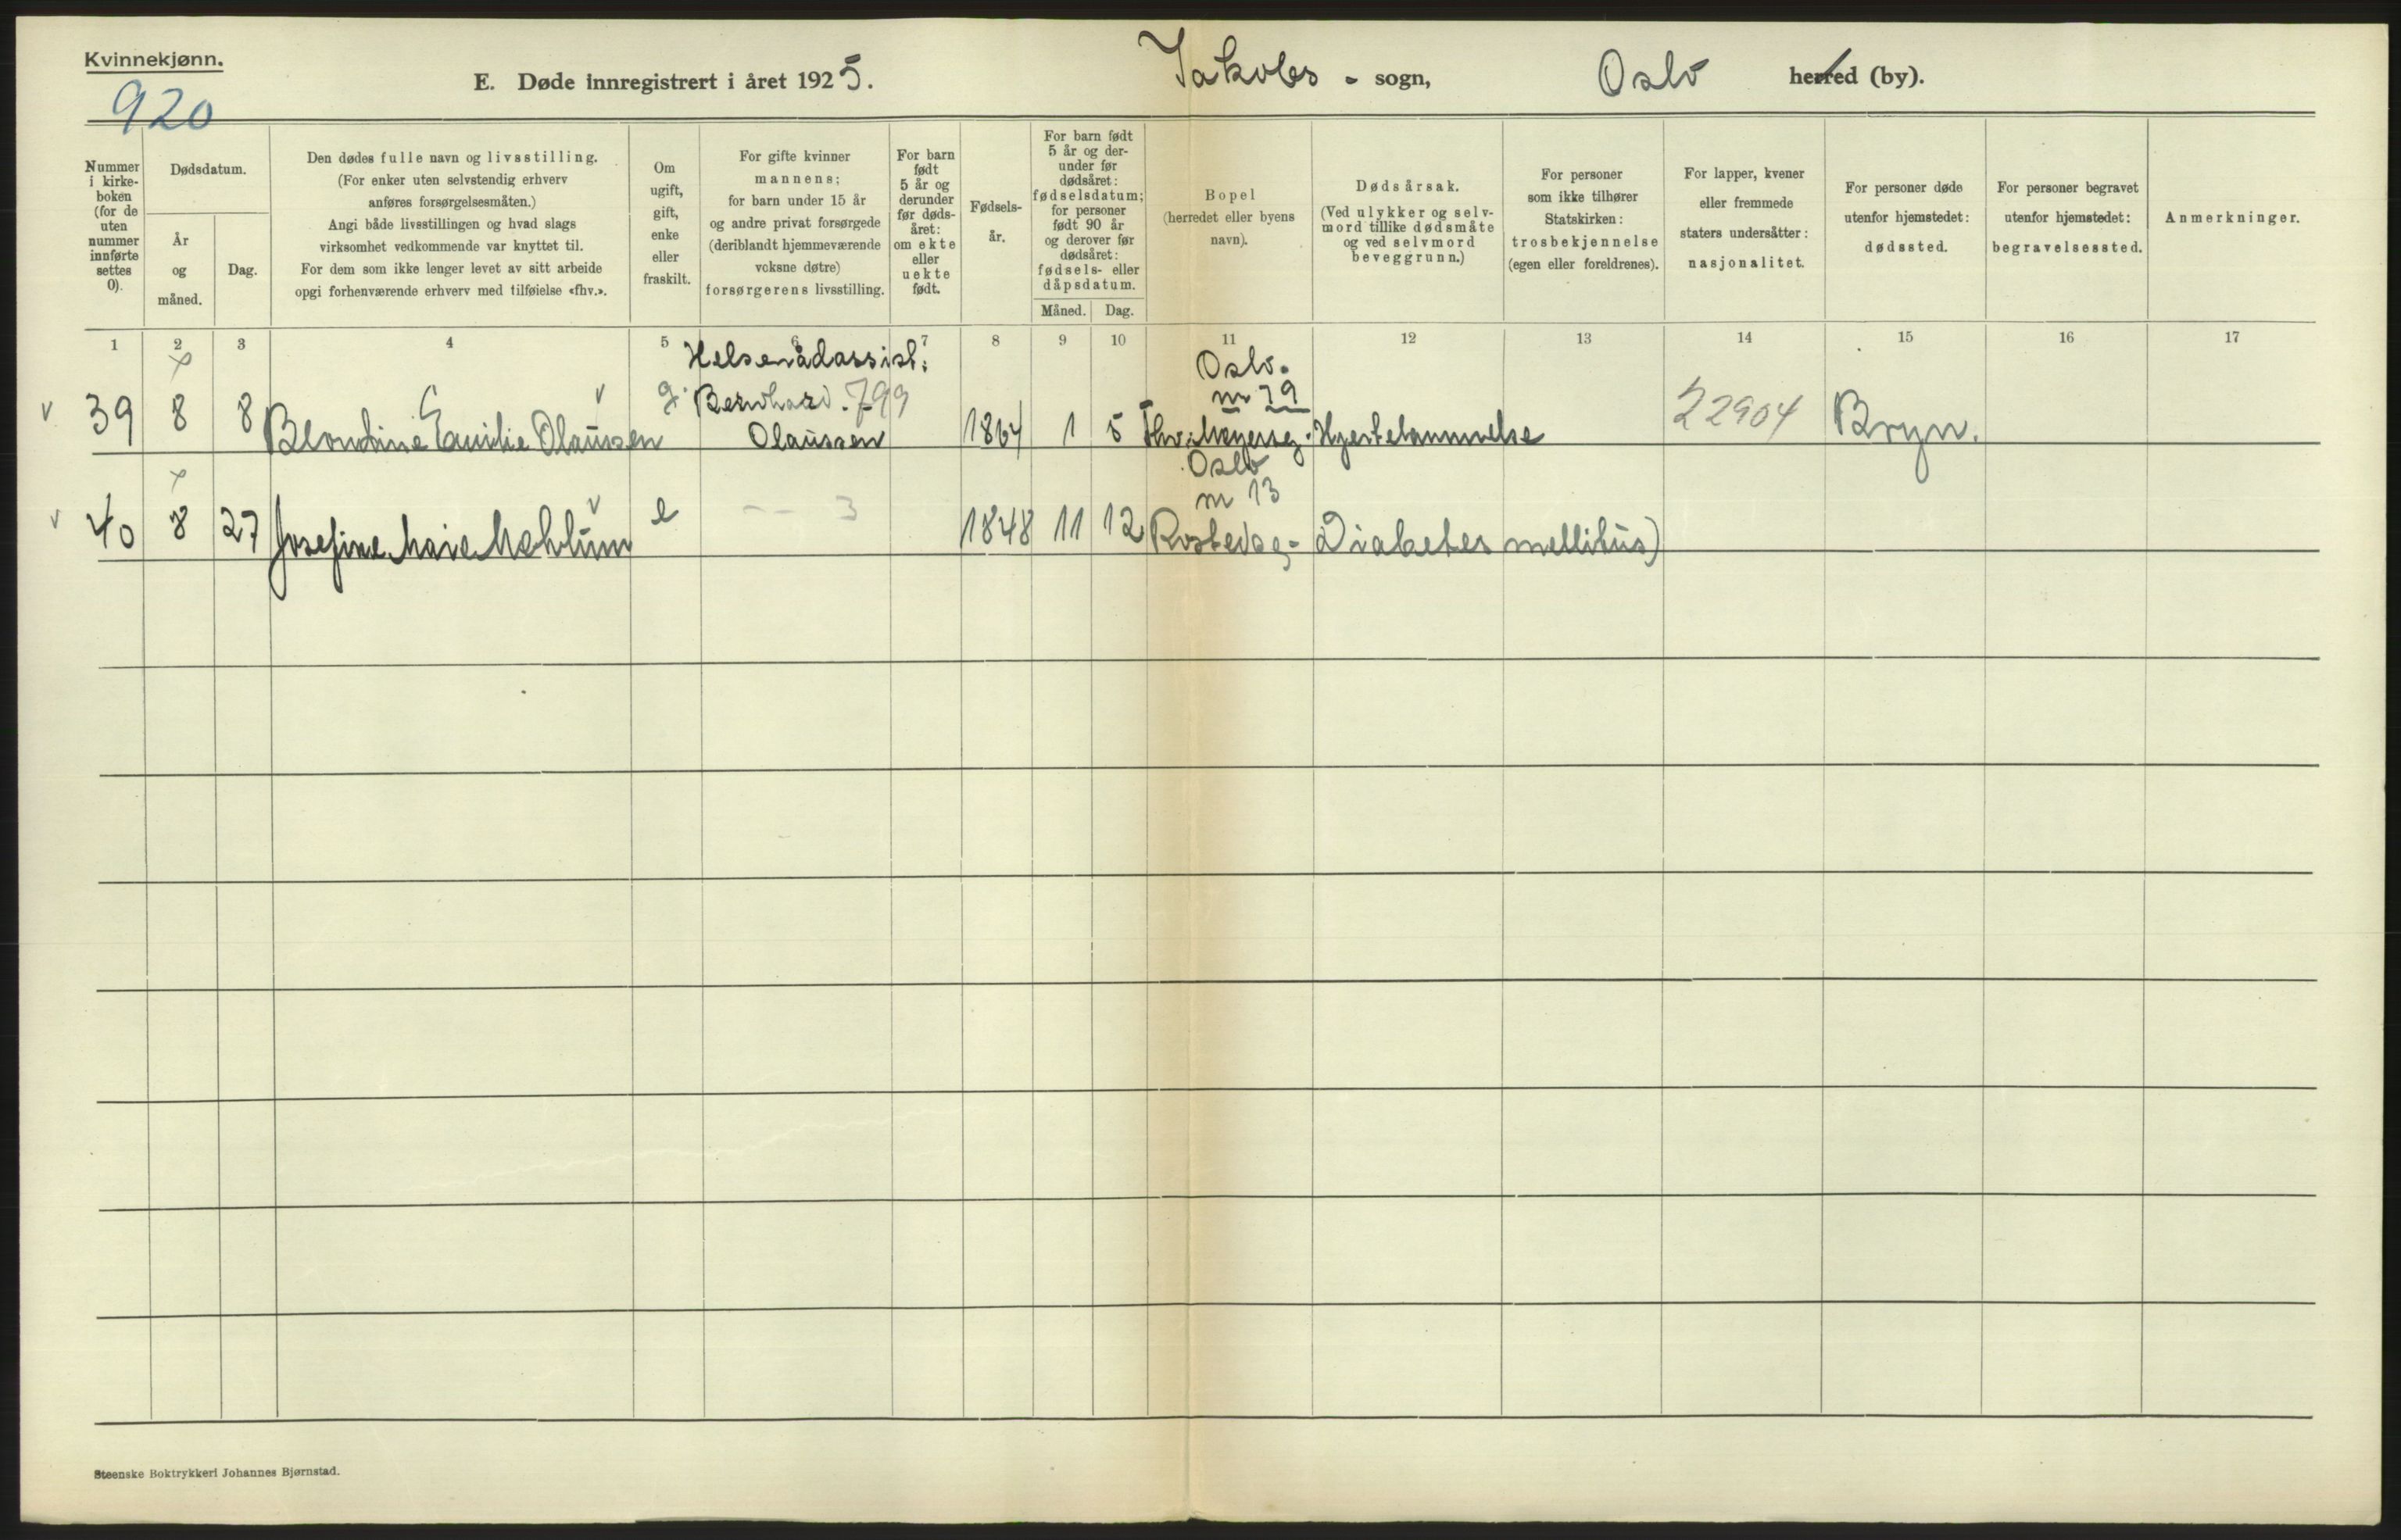 Kvinnekjønn.
920
E. Døde innregistrert i året 1925.
Jakobs - sogn,
Oslo
herred (by).
Nummer
i kirke-
boken
(for de
uten
nummer
innførte
settes
0).
Dødsdatum.
År
og
måned.
Dag.
Den dødes fulle navn og livsstilling.
(For enker uten selvstendig erhverv
anføres forsørgelsesmåten.)
Angi både livsstillingen og hvad slags
virksomhet vedkommende var knyttet til.
For dem som ikke lenger levet av sitt arbeide
opgi forhenværende erhverv med tilføielse «fhv.».
Om
ugift,
gift,
enke
eller
fraskilt.
For gifte kvinner
mannens;
for barn under 15 år
og andre privat forsørgede
(deriblandt hjemmeværende
voksne døtre)
forsørgerens livsstilling.
For barn
født
5 år og
derunder
før døds-
året:
om ekte
eller
uekte
født.
Fødsels-
år.
For barn født
5 år og der-
under før
dødsåret:
fødselsdatum;
for personer
født 90 år
og derover før
dødsåret:
fødsels- eller
dåpsdatum.
Måned.
Dag.
Bopel
(herredet eller byens
navn).
Dødsårsak.
(Ved ulykker og selv-
mord tillike dødsmåte
og ved selvmord
beveggrunn.)
For personer
som ikke tilhører
Statskirken:
trosbekjennelse
(egen eller foreldrenes).
For lapper, kvener
eller fremmede
staters undersåtter:
nasjonalitet.
For personer døde
utenfor hjemstedet:
dødssted.
For personer begravet
utenfor hjemstedet:
begravelsessted.
Anmerkninger.
1 2 3 4 5 6 7 8 9 10 11 12 13 14 15 16 17
Helserådassist:
Oslo.
g. Bernhard. 799
22904
39 8 8 Blondine Emilie Olaussen
Olaussen
1864 1 5
Hjertelammelse
Bryn.
Oslo
13
40 8 27 Josefine Marie Mehlum e -- 3
1848 11 12
Rostedsg-
Diabetes mellitus)
Steenske Boktrykkeri Johannes Bjørnstad.